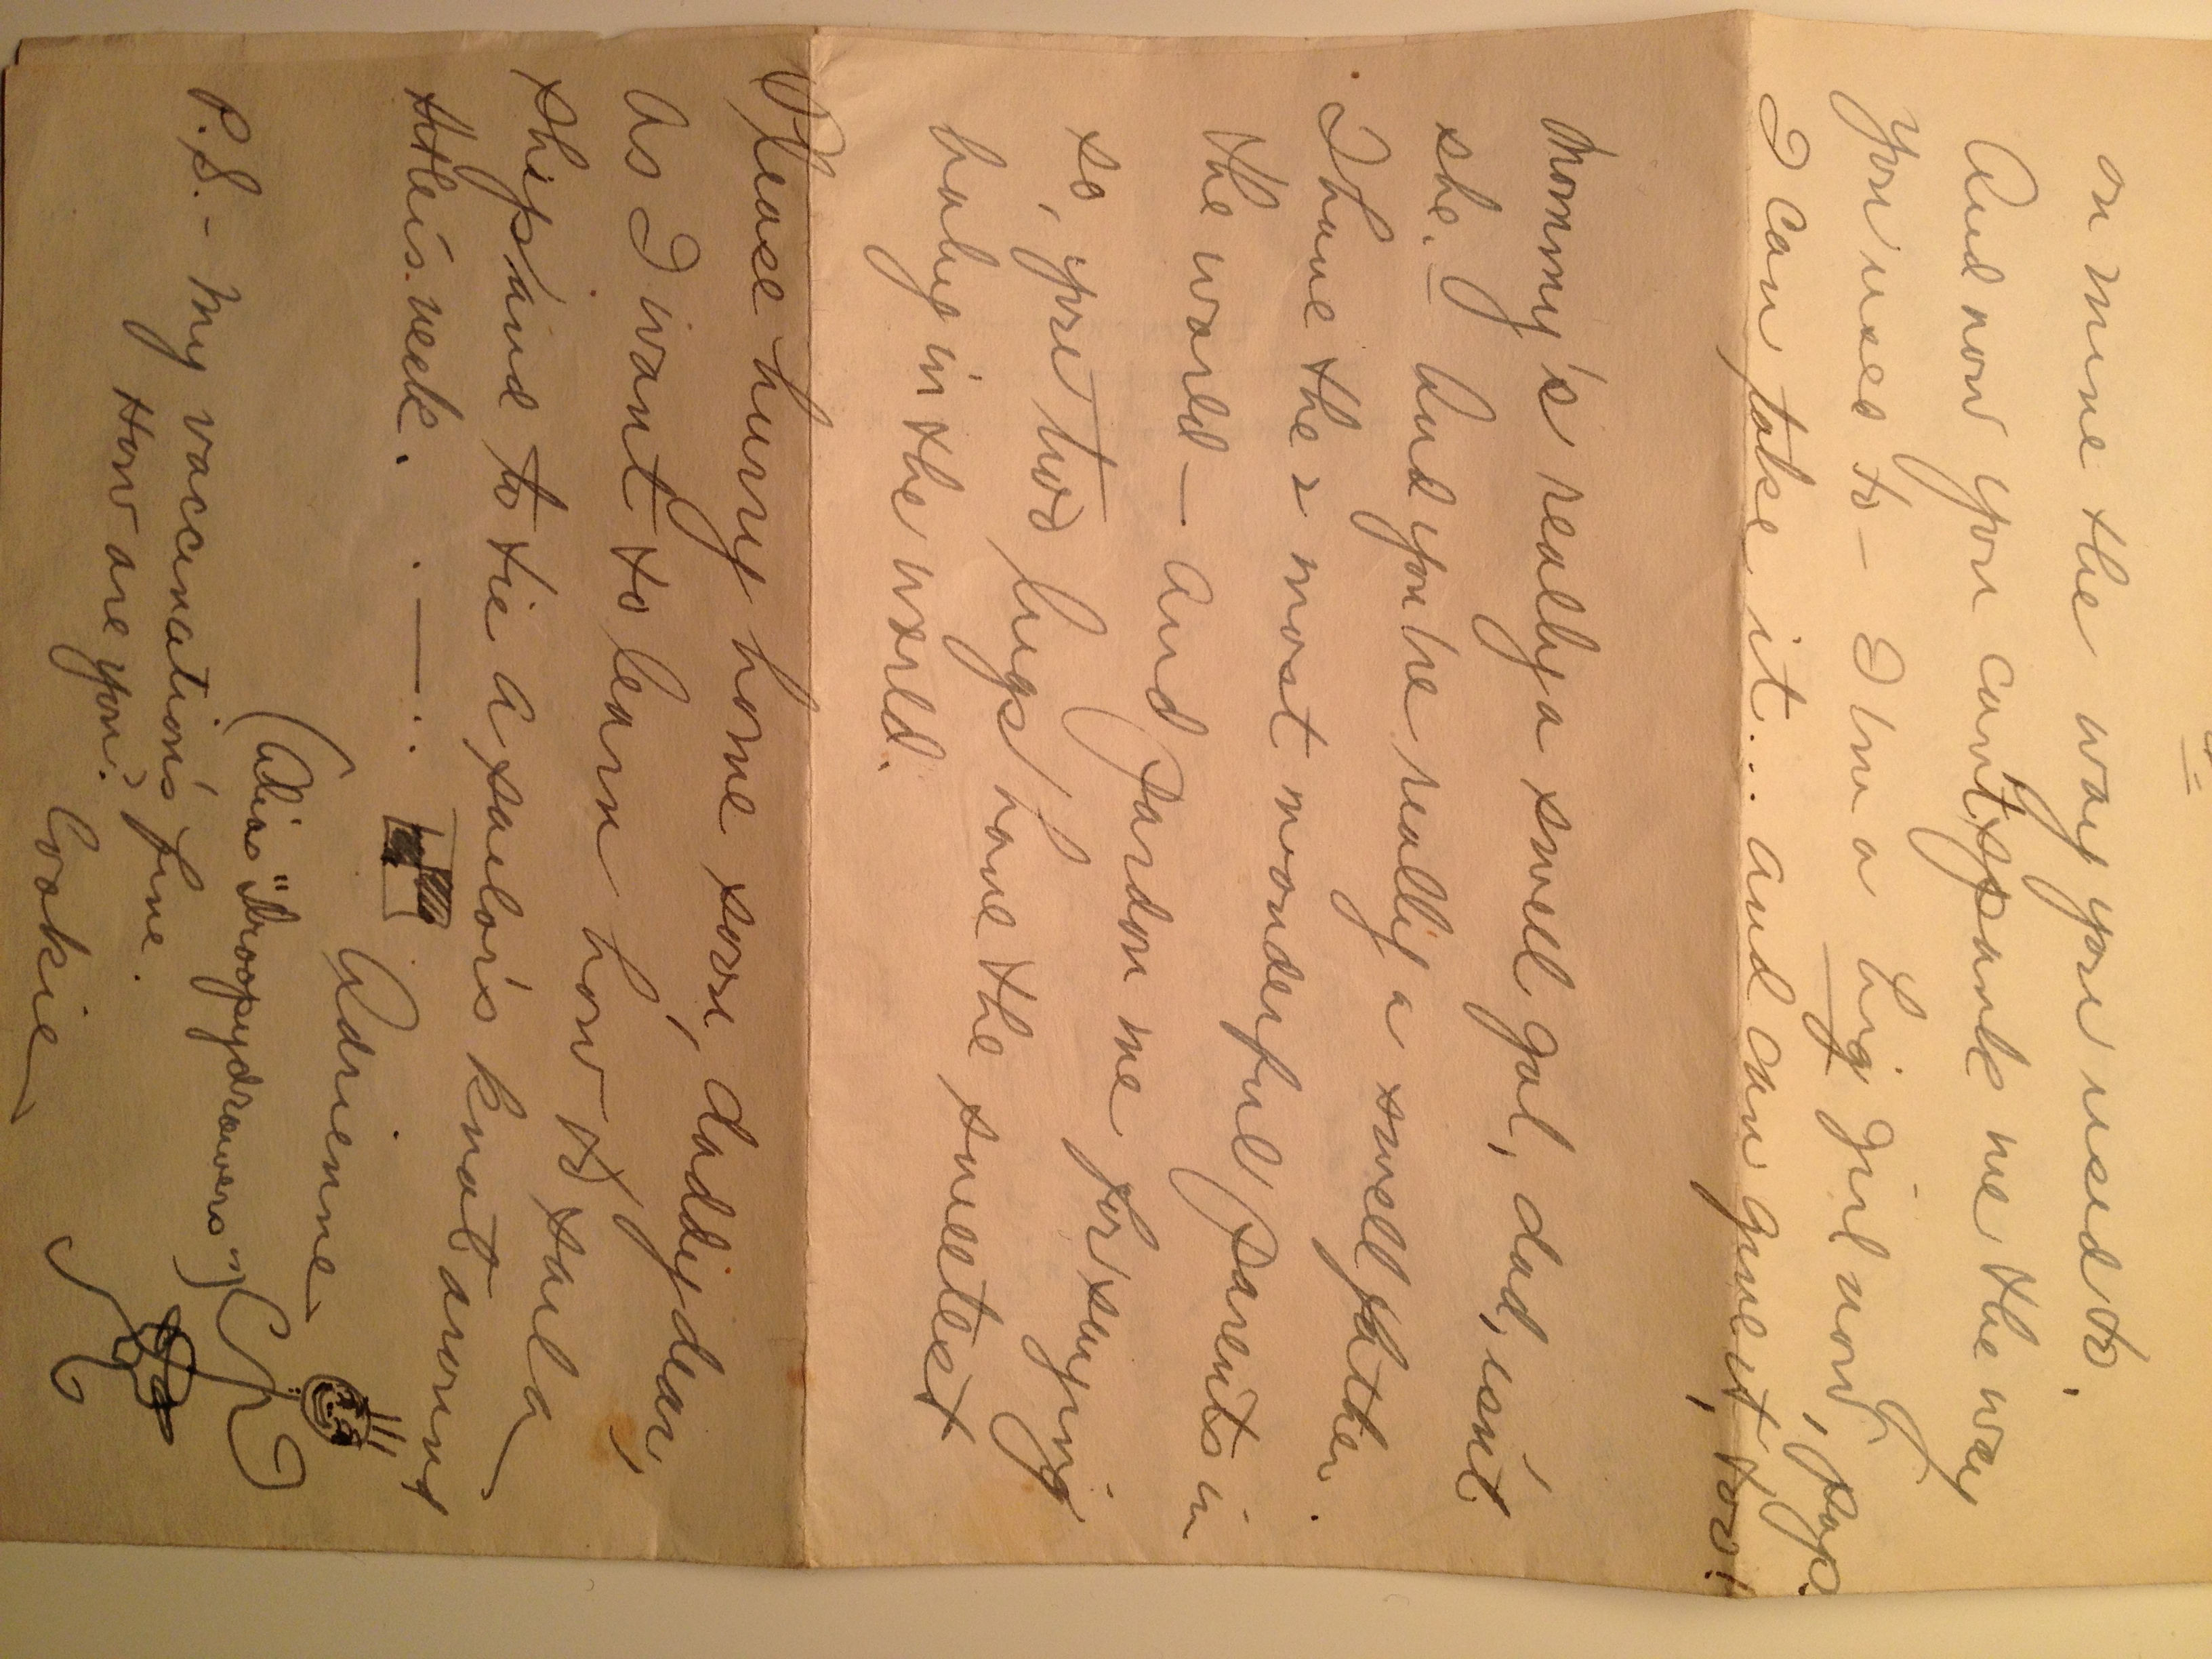 on mine the way you used to.
And now you can't spank me the way
you used to — I'm a big girl now, pop.
I can take it... and can give it, too!
Mommy's really a swell gal, dad, isn't
she. — And you're really a swell father.
I have the 2 most wonderful parents in
the world — and pardon me for saying
so, you two lugs have the sweetest
baby in the world.
Please hurry home soon, daddy dear,
as I want to learn how to sail a
ship and to tie a sailor's knot around
Hitler's neck.
Adrienne
(Alias "droopydrawers")
P.S. - My vaccination's fine.
How are you?
Cookie